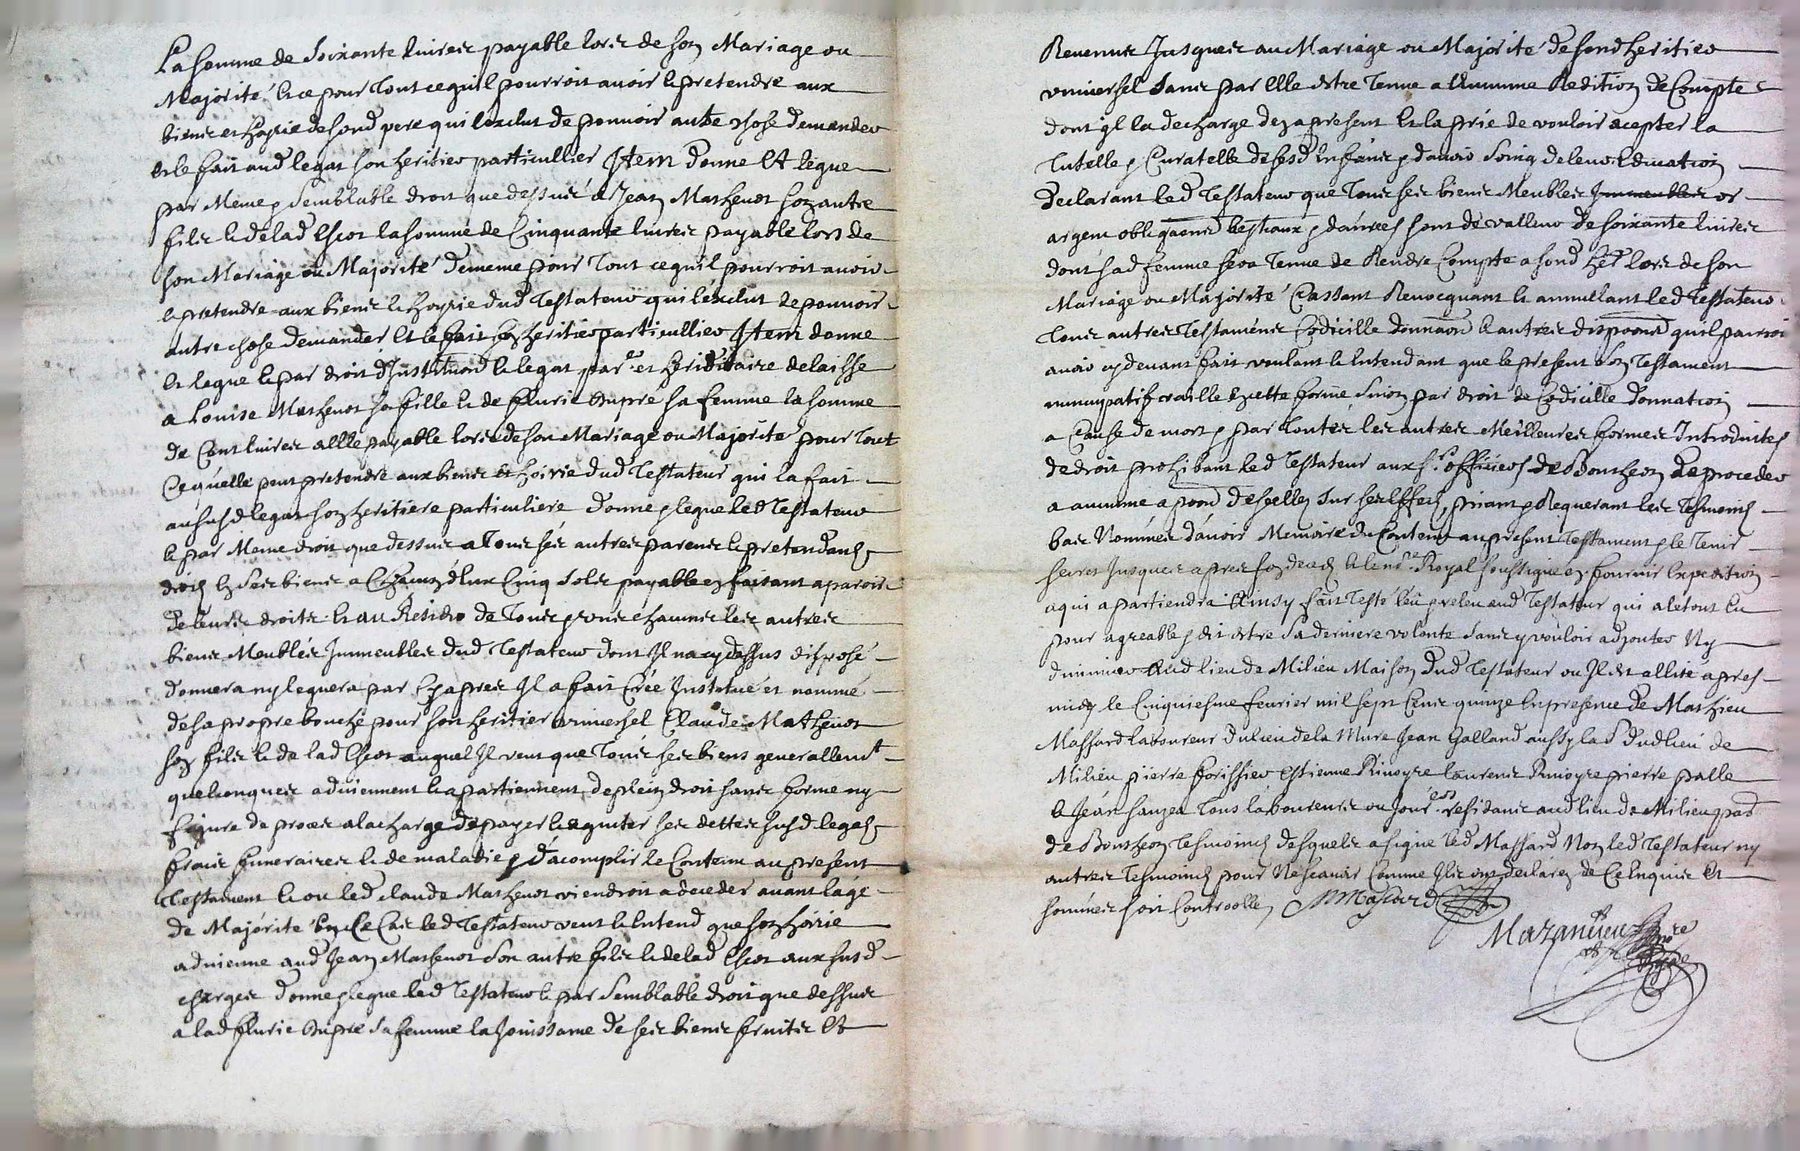 La somme de soixante livres payable lors de son Mariage ou
Majorité Et ce pour tout ce quil pourroit avoir et pretendre aux
biens et hoyrie desond pere qui l'exclut de pouvoir autre chose demander
et le fait aud legat son heritier particullier Item donne Et legue
par Meme et Semblable droit que dessus a Jean Mathevot son autre
fils et de lad Escot la somme de Cinquante livres payable lors de
son Mariage ou Majorité de meme pour tout ce quil pourroit avoir
et pretendre aux biens et hoyrie dud Testateur qui l'exclut de pouvoir
autre chose demander Et le fait son heritier particullier Item donne
Et legue et par droit d'Institution et legat par.er et hereditaire delaisse
a Louise Mathevot sa fille et de fleurie Dupré sa femme la somme
de Cent livres a Elle payable lors de son Mariage ou Majorité pour tout
Ce quelle peut pretendre aux biens et hoirie dud Testateur qui la fait
au susd legat son heritiere particuliere donne et legue led Testateur
et par Meme droit que dessus a tous ses autres parens et pretendans
droit En Ses biens a Chacun d'Eux Cinq sols payable En faisant aparoir
de leurs droits Et au Residu de Tous et uns chacuns les autres
biens Meubles Immeubles dud Testateur dont Il na cy dessus disposé
donnera ny leguera par Cy apres Il a fait Crée Institué et nommé
de sa propre bouche pour son heritier universel Claude Mathevot
son fils et de lad Escot auquel Il veut que Tous ses biens generallemt
quelconques adviennent et apartiennent de plein droit sans forme ny
figure de proces a la charge de payer et aquiter ses dettes susd legats
frais funeraires et de maladie et dacomplir le Contenu au present
Testament Et ou led Claude Mathevot viendroit a deceder avant l'age
de Majorité En Ce Cas led Testateur veut et Entend que son hoirie
advienne aud Jean Mathevot Son autre fils et de lad Escot aux susd
charges donne et legue led Testateur et par Semblable droit que dessus
a lad fleurie Dupre Sa femme la Jouissance de ses biens fruits Et
Revenus Jusques au Mariage ou Majorité de sond heritier
universel Sans par Elle Estre Tenue a Aucunne Redition de Compte
dont Il la decharge dez a present Et la prié de vouloir acepter la
Tutelle et Curatelle de sesd Enfans et davoir Soing de leur Education
declarant led Testateur que Tous ses biens Meubles Immeubles or
argent obligaons bestiaux et danrees sont de valleur de soixante livres
dont sad femme sera Tenue de Rendre Compte a sond her lors de son
Mariage ou Majorité Cassant Revocquant Et annullant led Testateur
Tous autres Testamens Codicille donnaon et autres dispoons quil pourroit
avoir cy devant fait voulant et Entendant que le present son Testament
nuncupatif vaille En cette forme Sinon par droit de Codicille donnation
a Cause de mort et par Toutes les autres Meilleures formes Introduites
de droit prohibant led Testateur aux srs officiers de Bontheon de proceder
a aucune apoon de scellez Sur ses Effects, priant et Requerant les Tesmoins
bas Nommés davoir Memoire du Contenu au present Testament et le Tenir
secret Jusques apres son deces Et le nore Royal soussigné En fournir Expedition
a qui apartiendra Ainsy fait Testé leu et releu aud Testateur qui a le tout Eu
pour agreable et dit Estre Sa derniere volonte Sans y vouloir adjouter Ny
diminuer Aud lieu de Milieu Maison dud Testateur ou Il Est allité apres
midy le Cinquiesme fevrier mil sept Cens quinze En presence de Mathieu
Massard laboureur du lieu de la Mure Jean Galland aussy lab dud lieu de
Milieu pierre forissier Estienne Rivoyre laurens Rivoyre pierre palle
Et Jean sanzea Tous laboureurs ou Jour.ers residans aud lieu de Milieu pard
de Bontheon Tesmoins desquels a signé led Massard Non led Testateur ny
autres Tesmoins pour Ne scavoir Comme Ils ont declarez de Ce Enquis Et
sommés soit Controollé, MMassard
Mazandieu